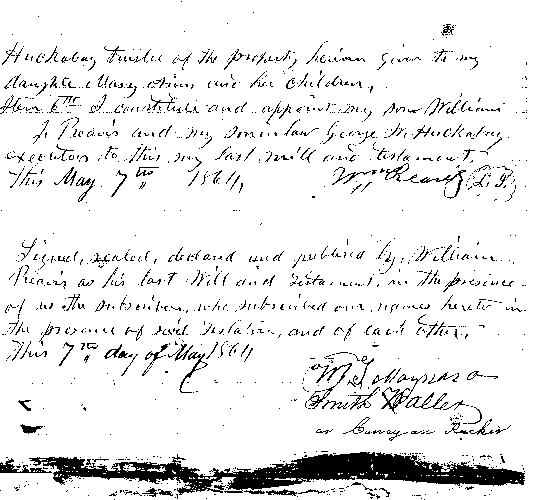 Huckabay trustee of the property herein given to my
daughter Mary Anns and her children,
Item 6th I constitute and appoint my son William
J. Reavis and my son in law George W. Huckabay
executors to this my last will and testament,
This May 7th 1864, Wm Reavis L. S.
Signed, sealed, declared and published by William
Reavis as his last Will and testament, in the presence
of us the subscribers, who subscribed our names hereto in
the presence of said testator, and of each other,
This 7th day of May 1864
Smith Waller